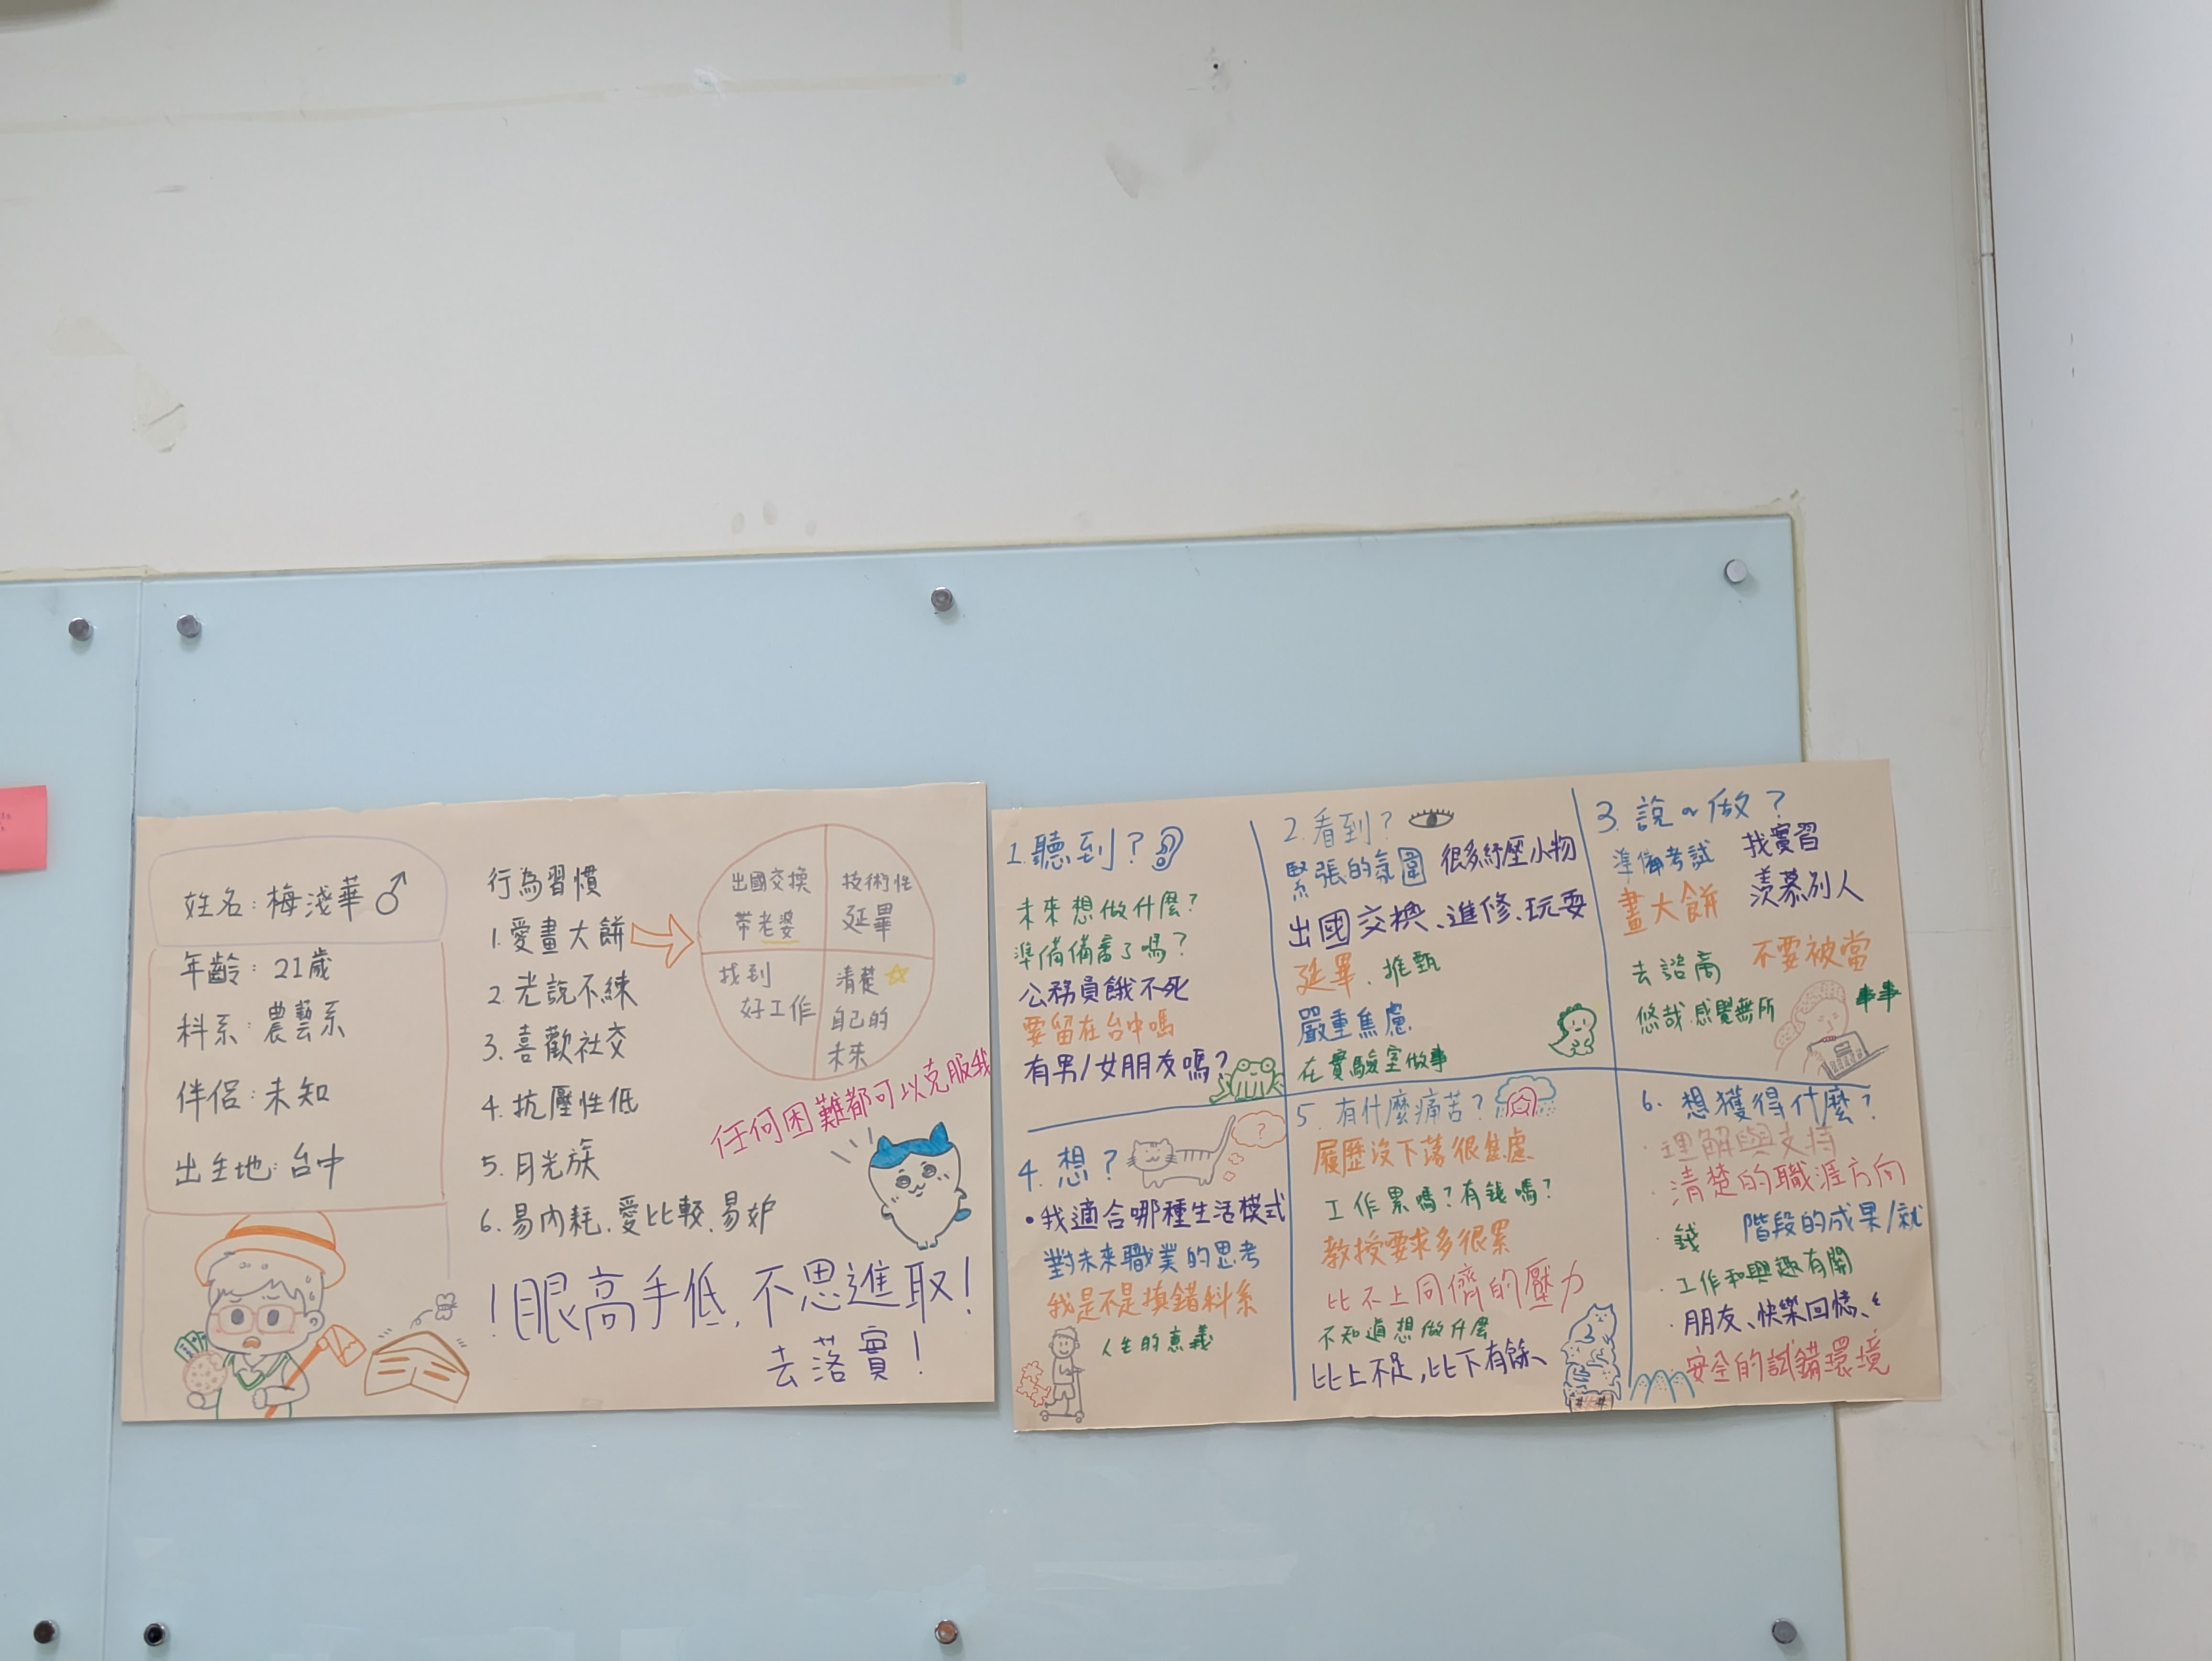 姓名:梅淺華♂
年齡:21歲
科系:農藝系
伴侶:未知
出生地:台中
行為習慣
1.愛畫大餅
2.光說不練
3.喜歡社交
4.抗壓性低
5.月光族
6.易內耗.愛比較.易妒
出國交換
帶老婆
技術性
延畢
找到
好工作
清楚
自己的
未來
任何困難都可以克服我
!眼高手低,不思進取!
去落實!
1.聽到?
未來想做什麼?
準備備審了嗎?
公務員餓不死
要留在台中嗎
有男/女朋友嗎?
2.看到?
緊張的氛圍
很多紓壓小物
出國交換、進修、玩耍
延畢、推甄
嚴重焦慮
在實驗室做事
3.說~做?
準備考試
找實習
畫大餅
羨慕別人
去諮商
不要被當
悠哉.感覺無所
事事
4.想?
?
•我適合哪種生活模式
對未來職業的思考
我是不是填錯科系
人生的意義
5.有什麼痛苦?
履歷沒下落很焦慮
工作累嗎?有錢嗎?
教授要求多很累
比不上同儕的壓力
不知道想做什麼
比上不足,比下有餘、
6.想獲得什麼?
·理解與支持
·清楚的職涯方向
·錢
階段的成果/就
·工作和興趣有關
·朋友、快樂回憶、
安全的試錯環境